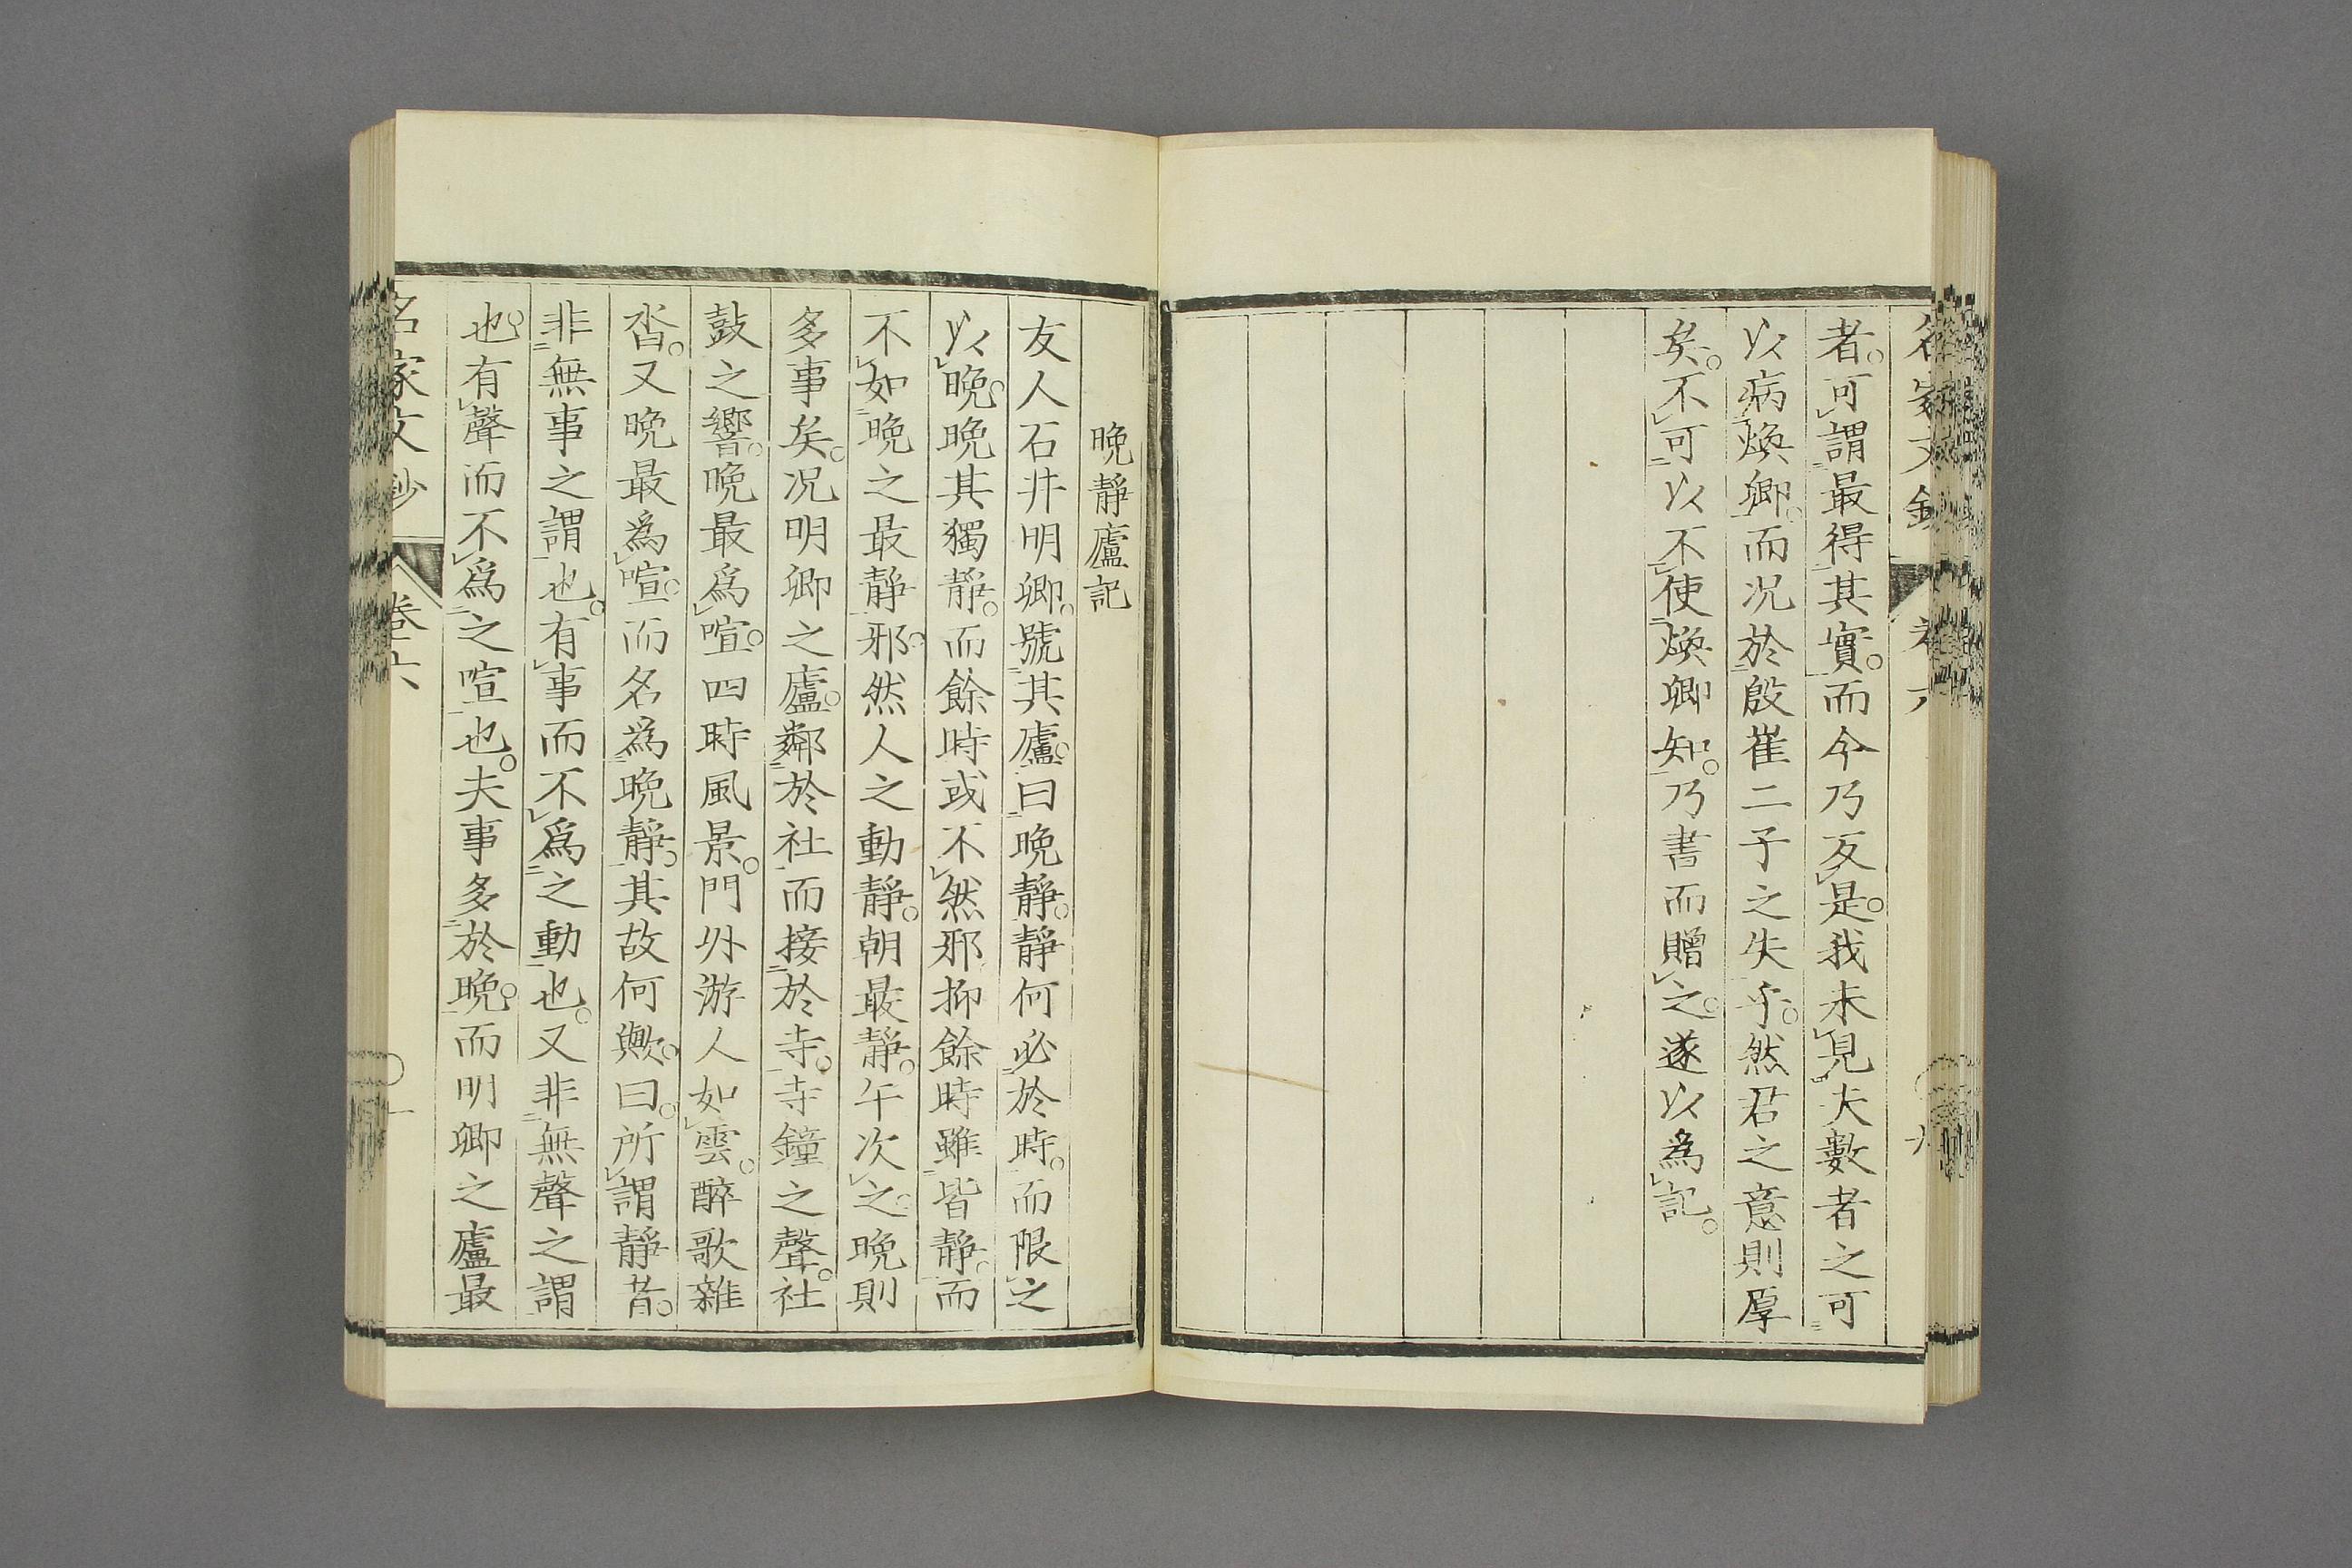 者。可謂最得其實。而今乃反是。我未見夫數者之可
以病煥卿。而況於殷崔二子之失乎。然君之意則厚
矣。不可以不使煥卿知。乃書而贈之。遂以為記。
晚靜廬記
友人石井明卿。號其廬。曰晚靜。靜何必於時。而限之
以晚。晚其獨靜。而餘時或不然邪抑餘時雖皆靜。而
不如晚之最靜邪。然人之動靜。朝最靜。午次之。晚則
多事矣。況明卿之廬。鄰於社而接於寺。寺鐘之聲。社
鼓之響。晚最為喧。四時風景。門外游人如雲。醉歌雜
沓。又晚最為喧。而名為晚靜。其故何歟。曰。所謂靜者。
非無事之謂也。有事而不為之動也。又非無聲之謂
也。有聲而不為之喧也。夫事多於晚。而明卿之廬最
名家文鈔
卷六